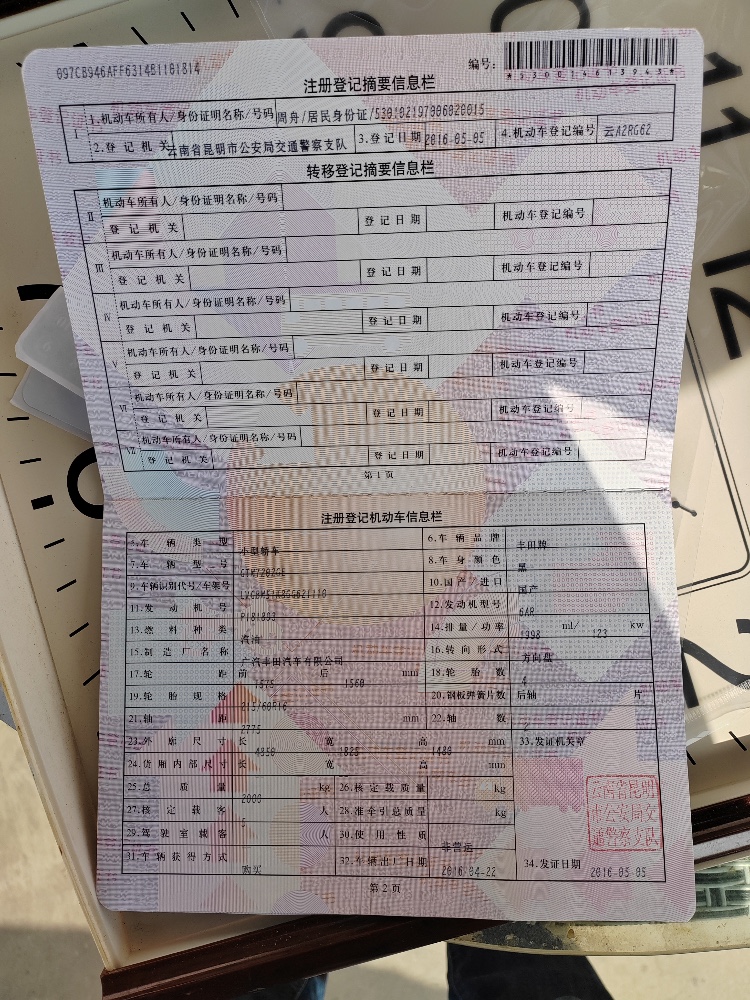 097CB946AFF6314B1181814
编号:
*530014613943*
注册登记摘要信息栏
I 1.机动车所有人/身份证明名称/号码 周舟/居民身份证/
2.登记机关 云南省昆明市公安局交通警察支队 3.登记日期 2016-05-05 4.机动车登记编号 云A2RG62
转移登记摘要信息栏
II 机动车所有人/身份证明名称/号码
登记机关 登记日期 机动车登记编号
III 机动车所有人/身份证明名称/号码
登记机关 登记日期 机动车登记编号
IV 机动车所有人/身份证明名称/号码
登记机关 登记日期 机动车登记编号
V 机动车所有人/身份证明名称/号码
登记机关 登记日期 机动车登记编号
VI 机动车所有人/身份证明名称/号码
登记机关 登记日期 机动车登记编号
VII 机动车所有人/身份证明名称/号码
登记机关 登记日期 机动车登记编号
第1页
注册登记机动车信息栏
5.车辆类型 小型轿车 6.车辆品牌 丰田牌
7.车辆型号 8.车身颜色 黑
9.车辆识别代号/车架号 10.国产/进口 国产
11.发动机号 12.发动机型号 6AR
13.燃料种类 汽油 14.排量/功率 1998 ml/ 123 kw
15.制造厂名称 广汽丰田汽车有限公司 16.转向形式 方向盘
17.轮距 前 1575 后 1560 mm 18.轮胎数 4
19.轮胎规格 215/60R16 20.钢板弹簧片数 后轴 片
21.轴距 2775 mm 22.轴数 2
23.外廓尺寸 长 4850 宽 1825 高 1480 mm 33.发证机关章
24.货厢内部尺寸 长 宽 高 mm
25.总质量 2000 kg 26.核定载质量 kg
27.核定载客 5 人 28.准牵引总质量 kg
29.驾驶室载客 人 30.使用性质 非营运
31.车辆获得方式 购买 32.车辆出厂日期 2016-04-22 34.发证日期 2016-05-05
云南省昆明
市公安局交
通警察支队
第2页